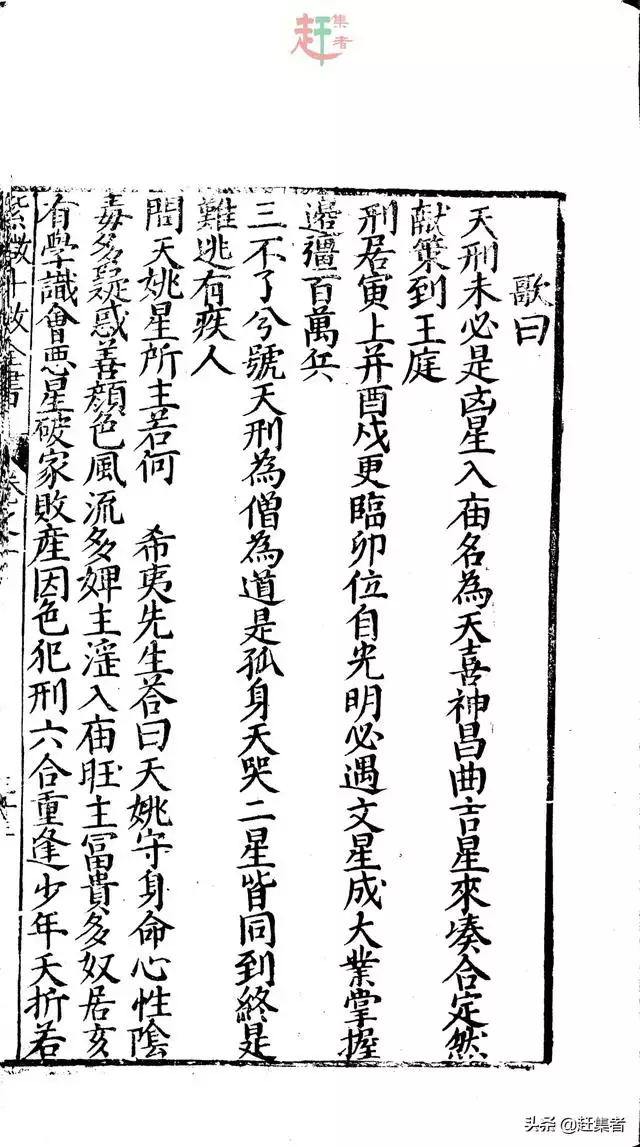 赶集者
歌曰
天刑未必是凶星入庙名為天喜神昌曲吉星來凑合定然
献策到王庭
刑居寅上并酉戍更臨卯位自光明必遇文星成大業掌握
邉彊百萬兵
三不了兮號天刑為僧為道是孤身天哭二星皆同到終是
難逃有疾人
問天姚星所主若何 希夷先生荅曰天姚守身命心性陰
毒多疑惑善顔色風流多婢主滛入庙旺主冨貴多奴居亥
有學識會惡星破家敗產因色犯刑六合重逢少年夭折若
紫微斗数全書 卷之一
头条 @赶集者